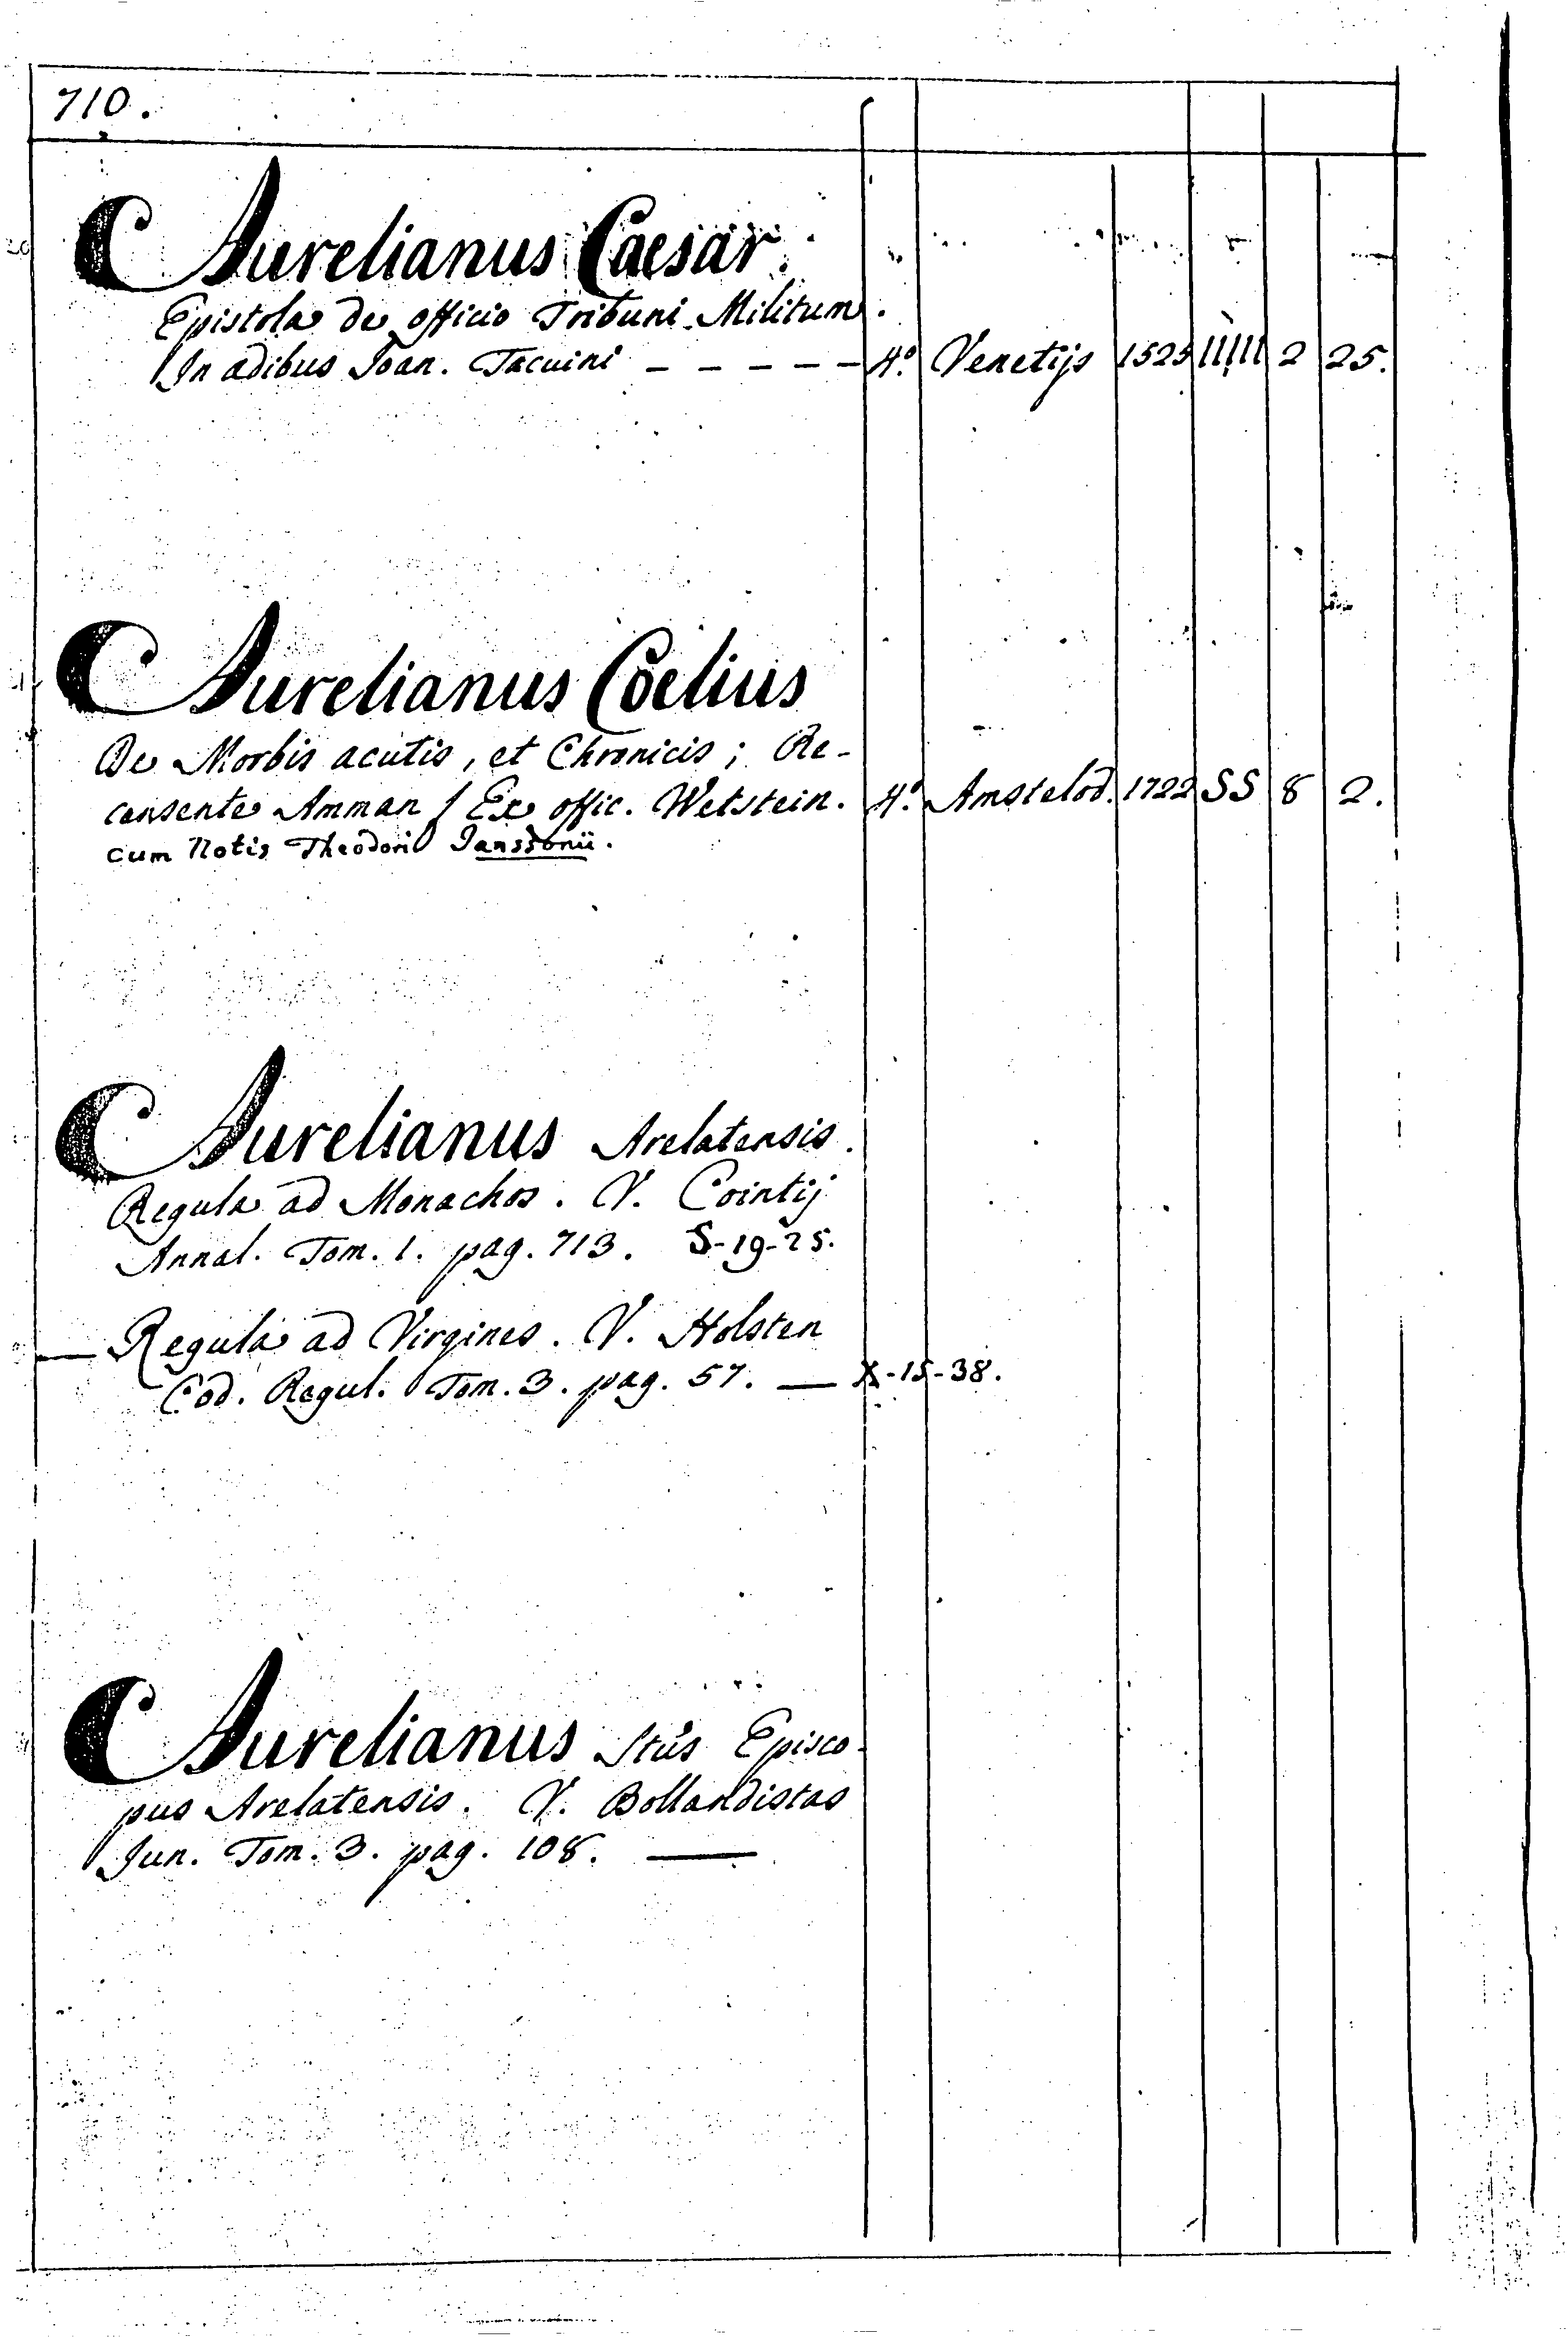 710.
Aurelianus Caesar.
Epistola de officio Tribuni Militum.
In adibus Joan. Tacuini - - - - - 4.º Venetijs 1525 IIIII 2 25.
Aurelianus Coelius
De Morbis acutis, et Chronicis; Re-
censente Amman / Ex offic. Wetstein. 4.º Amstelod. 1722 SS 8 2.
cum Notis Theodori Janssonii.
Aurelianus Arelatensis.
Regula ad Monachos. V. Cointij
Annal. Tom. 1. pag. 713. S-19-25.
— Regula ad Virgines. V. Holsten
Cod. Regul. Tom. 3. pag. 57. — X-15-38.
Aurelianus Stus Episco-
pus Arelatensis. V. Bollandistas
Jun. Tom. 3. pag. 108. —